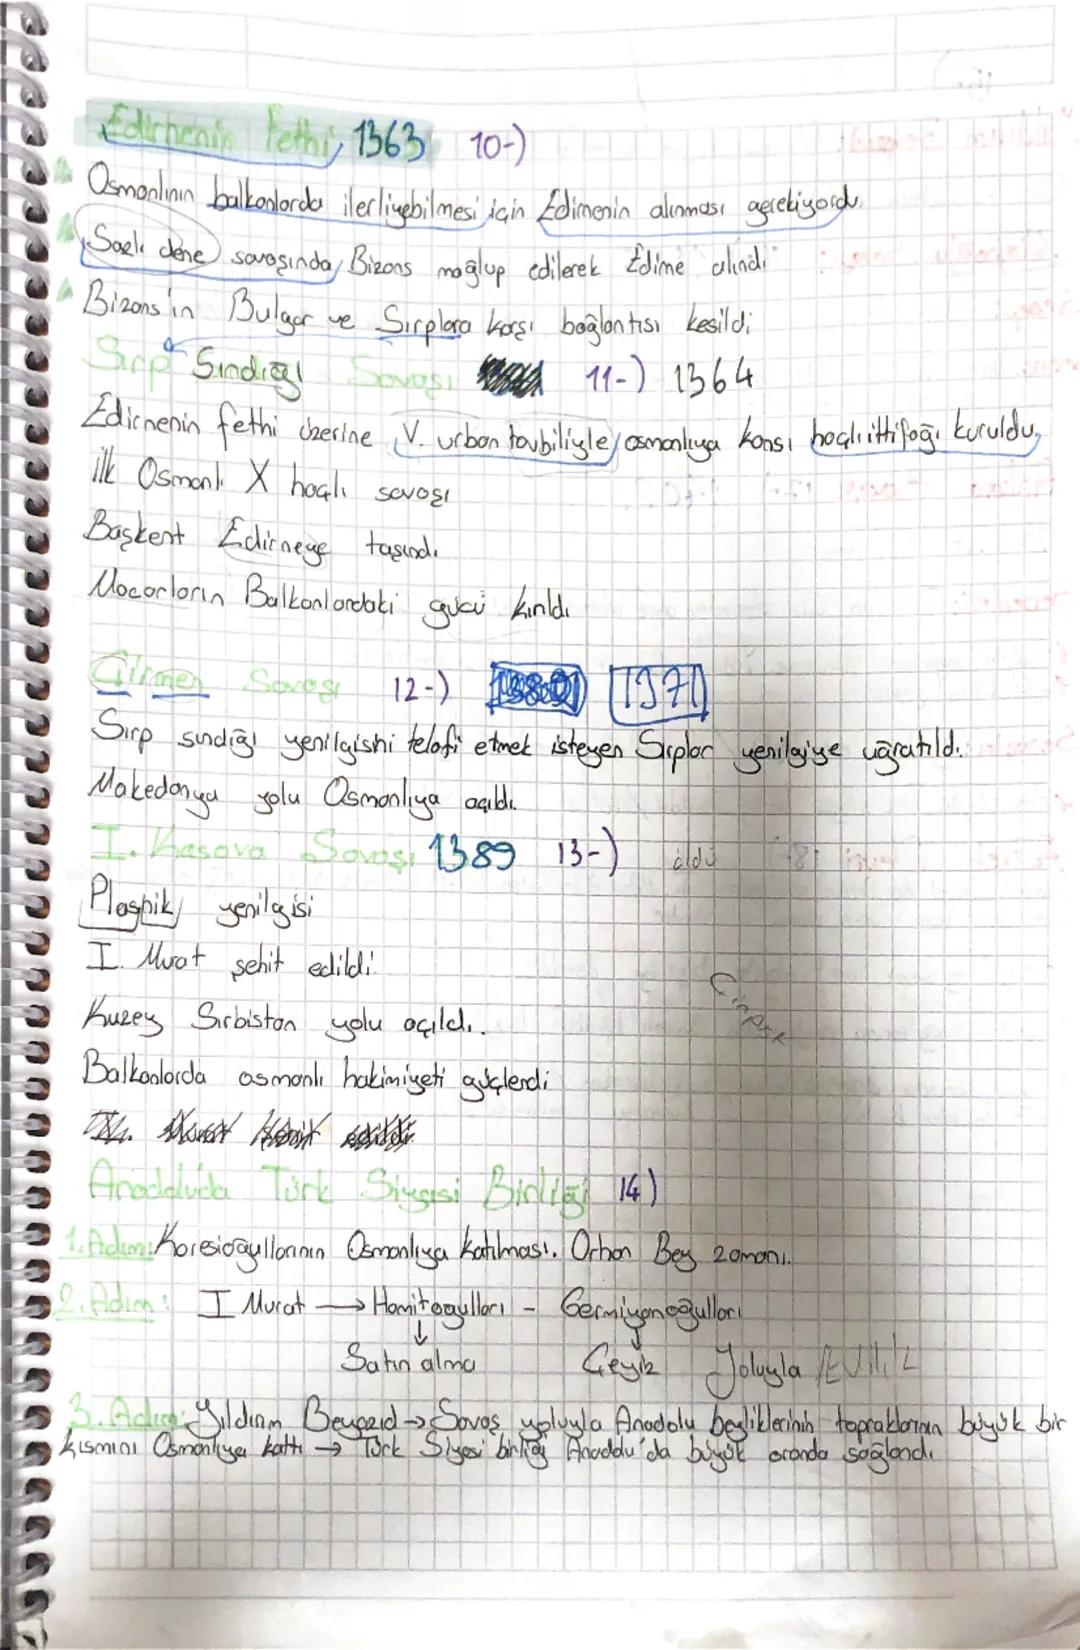 Edirnenin Fethi, 1363 10-)
Osmanlının balkanlarda ilerliyebilmesi için Edirnenin alınması gerekiyordu.
Sazlı dere savaşında, Bizans mağlup edilerek Edirne alındı
Bizans'ın Bulgar ve Sırplara karşı bağlantısı kesildi
Sırp Sındığı Savaşı 11-) 1364
Edirnenin fethi üzerine V. urban tavbiliyle osmanlıya karşı haçlı ittifağı kuruldu.
ilk Osmanlı X haçlı savaşı
Başkent Edirneye taşındı.
Macarların Balkanlardaki gücü kırıldı
Çirmen Savaşı 12-) 1371
Sırp sındığı yenilgisini telafi etmek isteyen Sırplar yenilgiye uğratıldı.
Makedonya yolu Osmanlıya açıldı.
I. Kosova Savaşı 1389 13-) öldü
Ploşnik yenilgisi
I. Murat şehit edildi.
Kuzey Sırbistan yolu açıldı.
Balkanlarda osmanlı hakimiyeti güçlendi
Anadoluda Türk Siyasi Birliği 14)
1.Adım: Karesioğullarının Osmanlıya katılması. Orhan Bey zamanı.
2.Adım: I Murat → Hamitoğulları - Germiyanoğulları
↓ ↓
Satın alma Çeyiz Yoluyla / Evlilik
3.Adım: Yıldırım Beyazıd → Savaş yoluyla Anadolu beyliklerinin topraklarının büyük bir
kısmını Osmanlıya kattı → Türk Siyasi birliği Anadolu'da büyük oranda sağlandı.